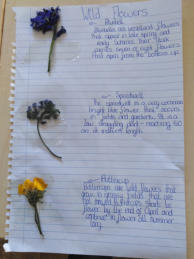 Wild Flowers
Bluebell
Bluebells are woodland flowers
that appear in late spring and
early summer. Their stalk
carries seven or eight flowers
that open from the bottom up
Speedwell
The speedwell is a very common
bright flower that occurs
in fields and gardens. It is a
low straggling plant reaching 50
cm at
length
Buttercup
Buttercups are wild flowers that
grow in grassy fields that are
not
flower by the end of April and
continue to flower all summer
long.